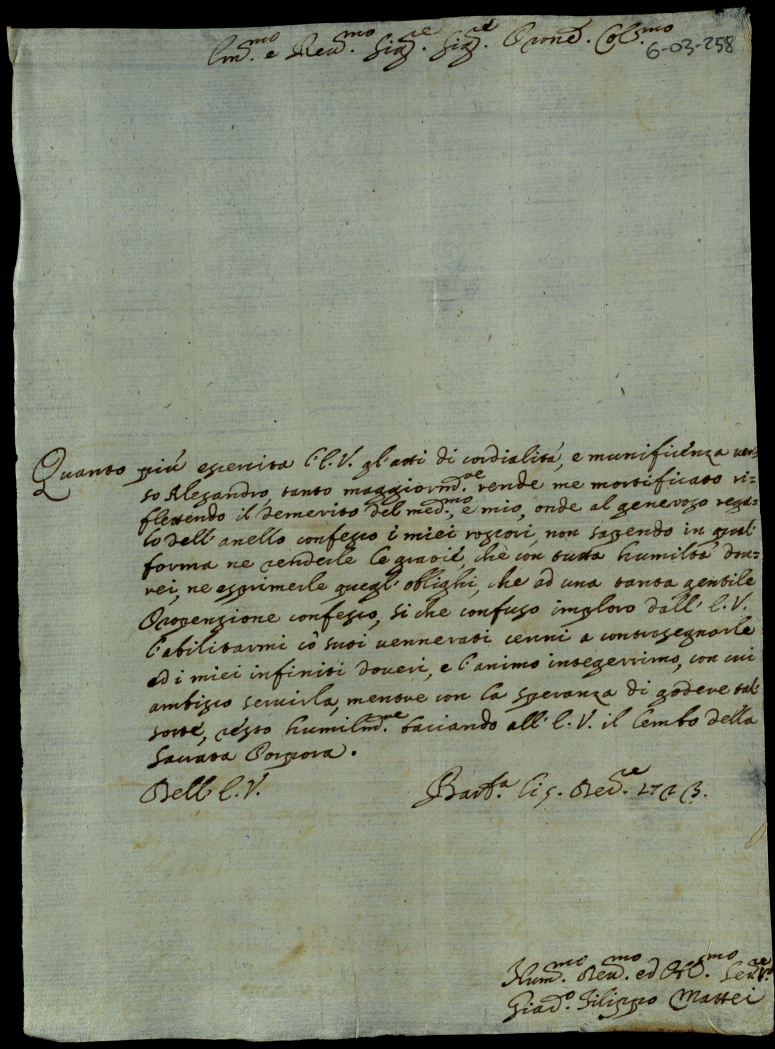 Em.mo e Reu.mo Sig.re Sig.re Prone Col.mo
6-03-258
Quanto più esercita l'E.V. gl'atti di cordialità, e munificenza uer=
so Alesandro, tanto maggiorm.te rende me mortificato ri=
flettendo il demerito del med.mo, e mio, onde al generoso rega=
lo dell'anello confesso i miei rossori, non sapendo in qual
forma ne renderle le grazie, che con tutta humiltà dou=
rei, ne esprimerle quegl'oblighi, che ad una tanta gentile
Propenzione confesso, si che confuso imploro dall'E.V.
l'abilitarmi cõ suoi uennerati cenni a contrasegnarle
ed i miei infiniti doueri, e l'animo integerrimo, con cui
ambisco seruirla, mentre con la speranza di godere tal
sorte, resto humilm.te baciando all'E.V. il lembo della
Sacrata Porpora.
Dell'E.V.
Hum.mo Deu.mo ed Obl.mo Seru.re
Filippo Mattei